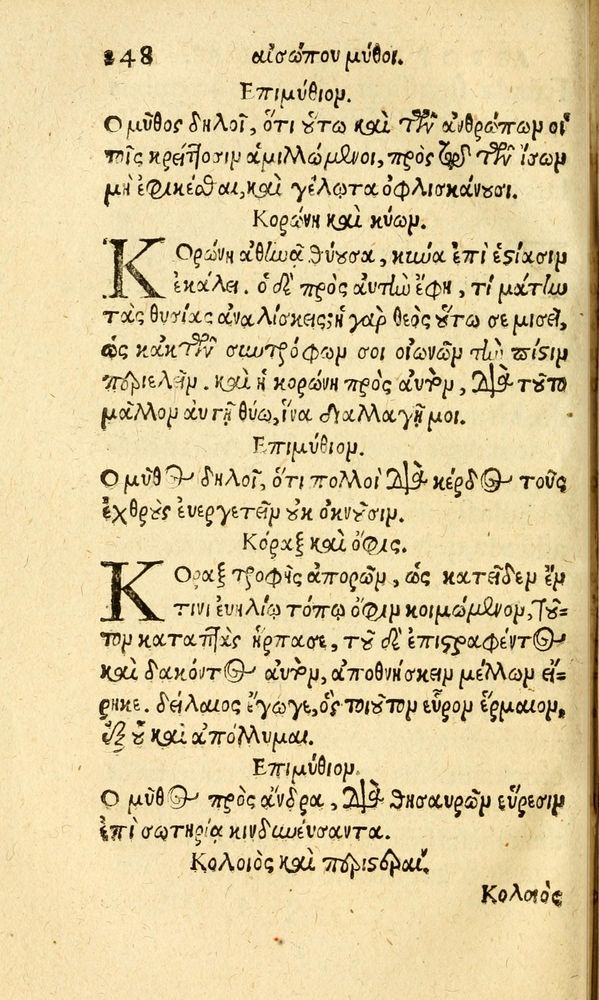 248 αἰσώπου μύθοι.
Επιμύθιον.
Ο μῦθος δηλοῖ, ὅτι οὕτω καὶ τῶν ἀνθρώπων οἱ
τοῖς κρείττοσιν ἁμιλλώμενοι, πρὸς τῷ τῶν ἴσων
μὴ ἐφικέσθαι, καὶ γέλωτα ὀφλισκάνουσι.
Κορώνη καὶ κύων.
ΚΟρώνη ἀθηνᾷ θύουσα, κύνα ἐπὶ ἑστίασιν
ἐκάλει. ὁ δὲ πρὸς αὐτὴν ἔφη, τί μάτην
τὰς θυσίας ἀναλίσκεις; ἡ γὰρ θεὸς οὕτω σε μισεῖ,
ὡς κἀκ τῶν συντρόφων σοι οἰωνῶν τὴν πίστιν
περιελεῖν. καὶ ἡ κορώνη πρὸς αὐτὸν, διὰ τοῦτο
μᾶλλον αὐτῇ θύω, ἵνα διαλλαγῇ μοι.
Επιμύθιον.
Ο μῦθος δηλοῖ, ὅτι πολλοὶ διὰ κέρδος τοὺς
ἐχθροὺς ἐυεργετεῖν οὐκ ὀκνοῦσιν.
Κόραξ καὶ ὄφις.
ΚΟραξ τροφῆς ἀπορῶν, ὡς κατεῖδεν ἔν
τινι ἐυηλίῳ τόπῳ ὄφιν κοιμώμενον, τοῦ-
τον καταπτὰς ἥρπασε, τοῦ δὲ ἐπιστραφέντος
καὶ δακόντος αὐτὸν, ἀποθνήσκειν μέλλων εἴ-
ρηκε. δείλαιος ἔγωγε, ὃς τοιοῦτον εὗρον ἕρμαιον,
ἐξ οὗ καὶ ἀπόλλυμαι.
Επιμύθιον.
Ο μῦθος πρὸς ἄνδρα, διὰ θησαυρῶν εὕρεσιν
ἐπὶ σωτηρίᾳ κινδυνεύσαντα.
Κολοιὸς καὶ περιστεραί.
Κολοιὸς